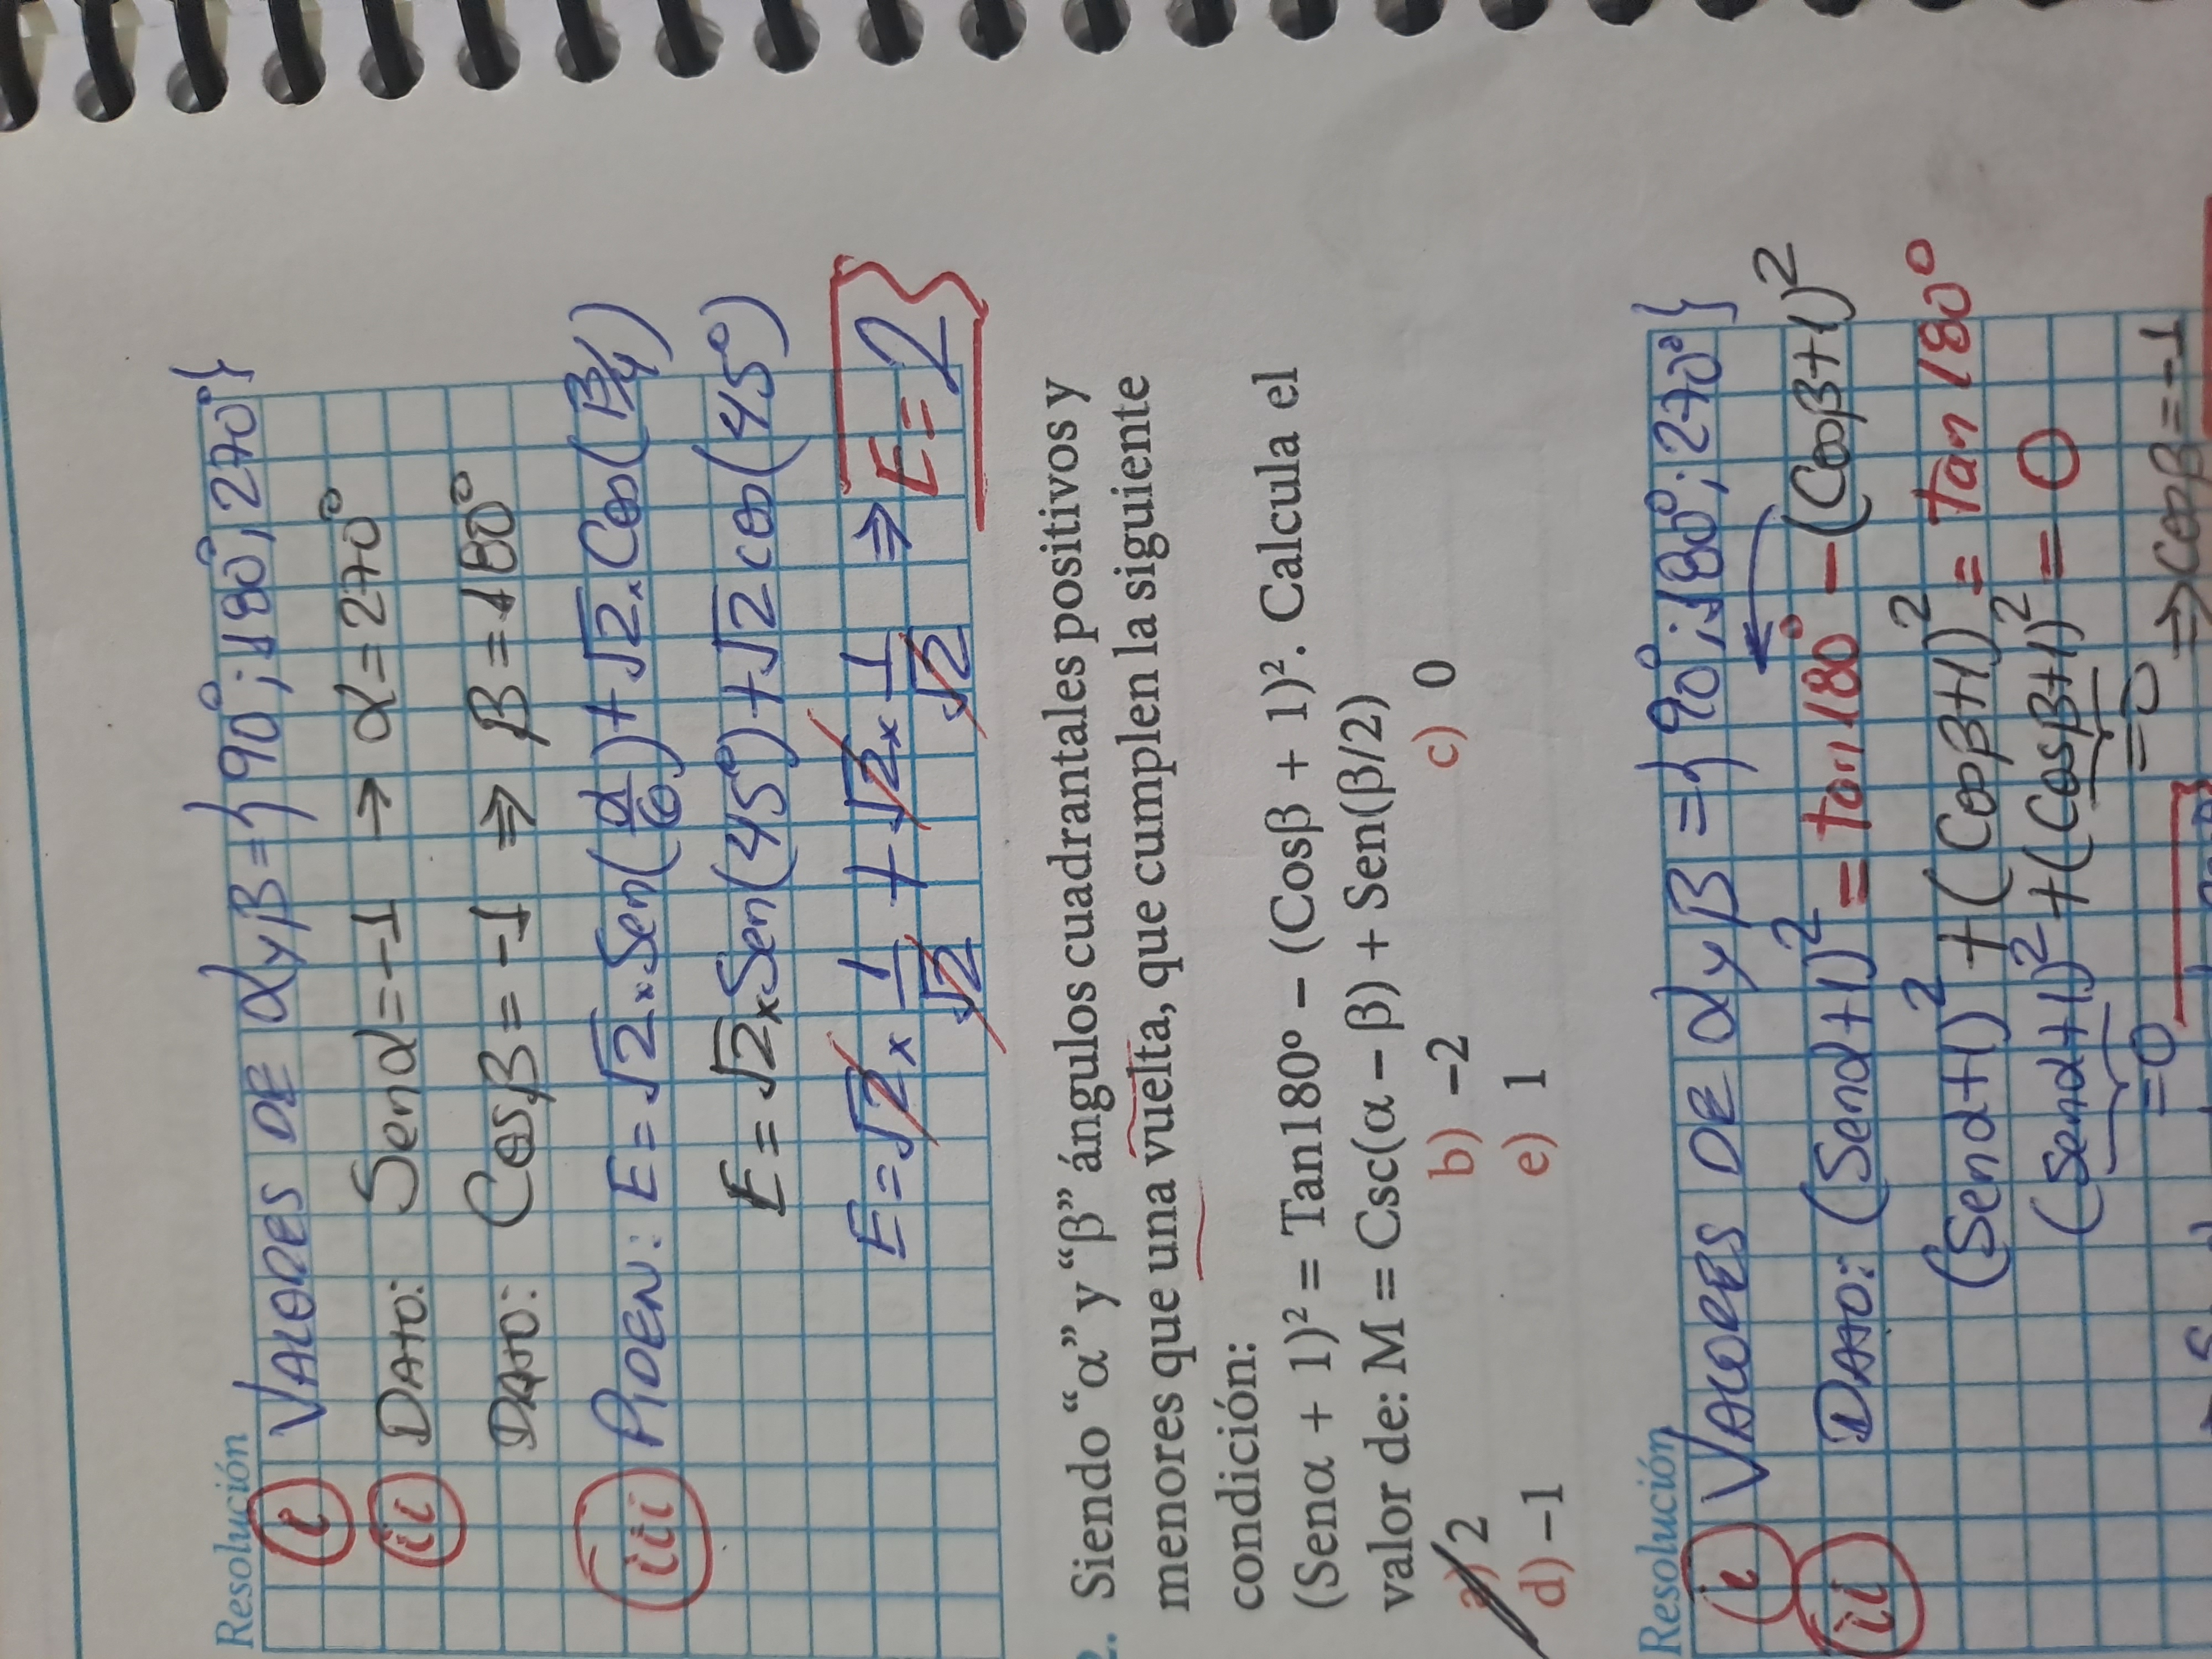 Resolución
i VALORES DE α y β = {90°; 180°; 270°}
ii DATO: Senα = -1 → α = 270°
DATO: Cosβ = -1 ⇒ β = 180°
iii PIDEN: E = √2 x Sen(α/6) + √2 x Cos(β/4)
E = √2 x Sen(45°) + √2 cos(45°)
E = √2 x 1/√2 + √2 x 1/√2 ⇒ E = 2
2. Siendo “α” y “β” ángulos cuadrantales positivos y
menores que una vuelta, que cumplen la siguiente
condición:
(Senα + 1)² = Tan180º – (Cosβ + 1)². Calcula el
valor de: M = Csc(α – β) + Sen(β/2)
a) 2 b) –2 c) 0
d) –1 e) 1
Resolución
i VALORES DE α y β = {90°; 180°; 270°}
ii DATO: (Senα+1)² = tan180° - (Cosβ+1)²
(Senα+1)² + (Cosβ+1)² = tan 180°
(Senα+1)² + (Cosβ+1)² = 0
=0 =0
⇒ cosβ = -1